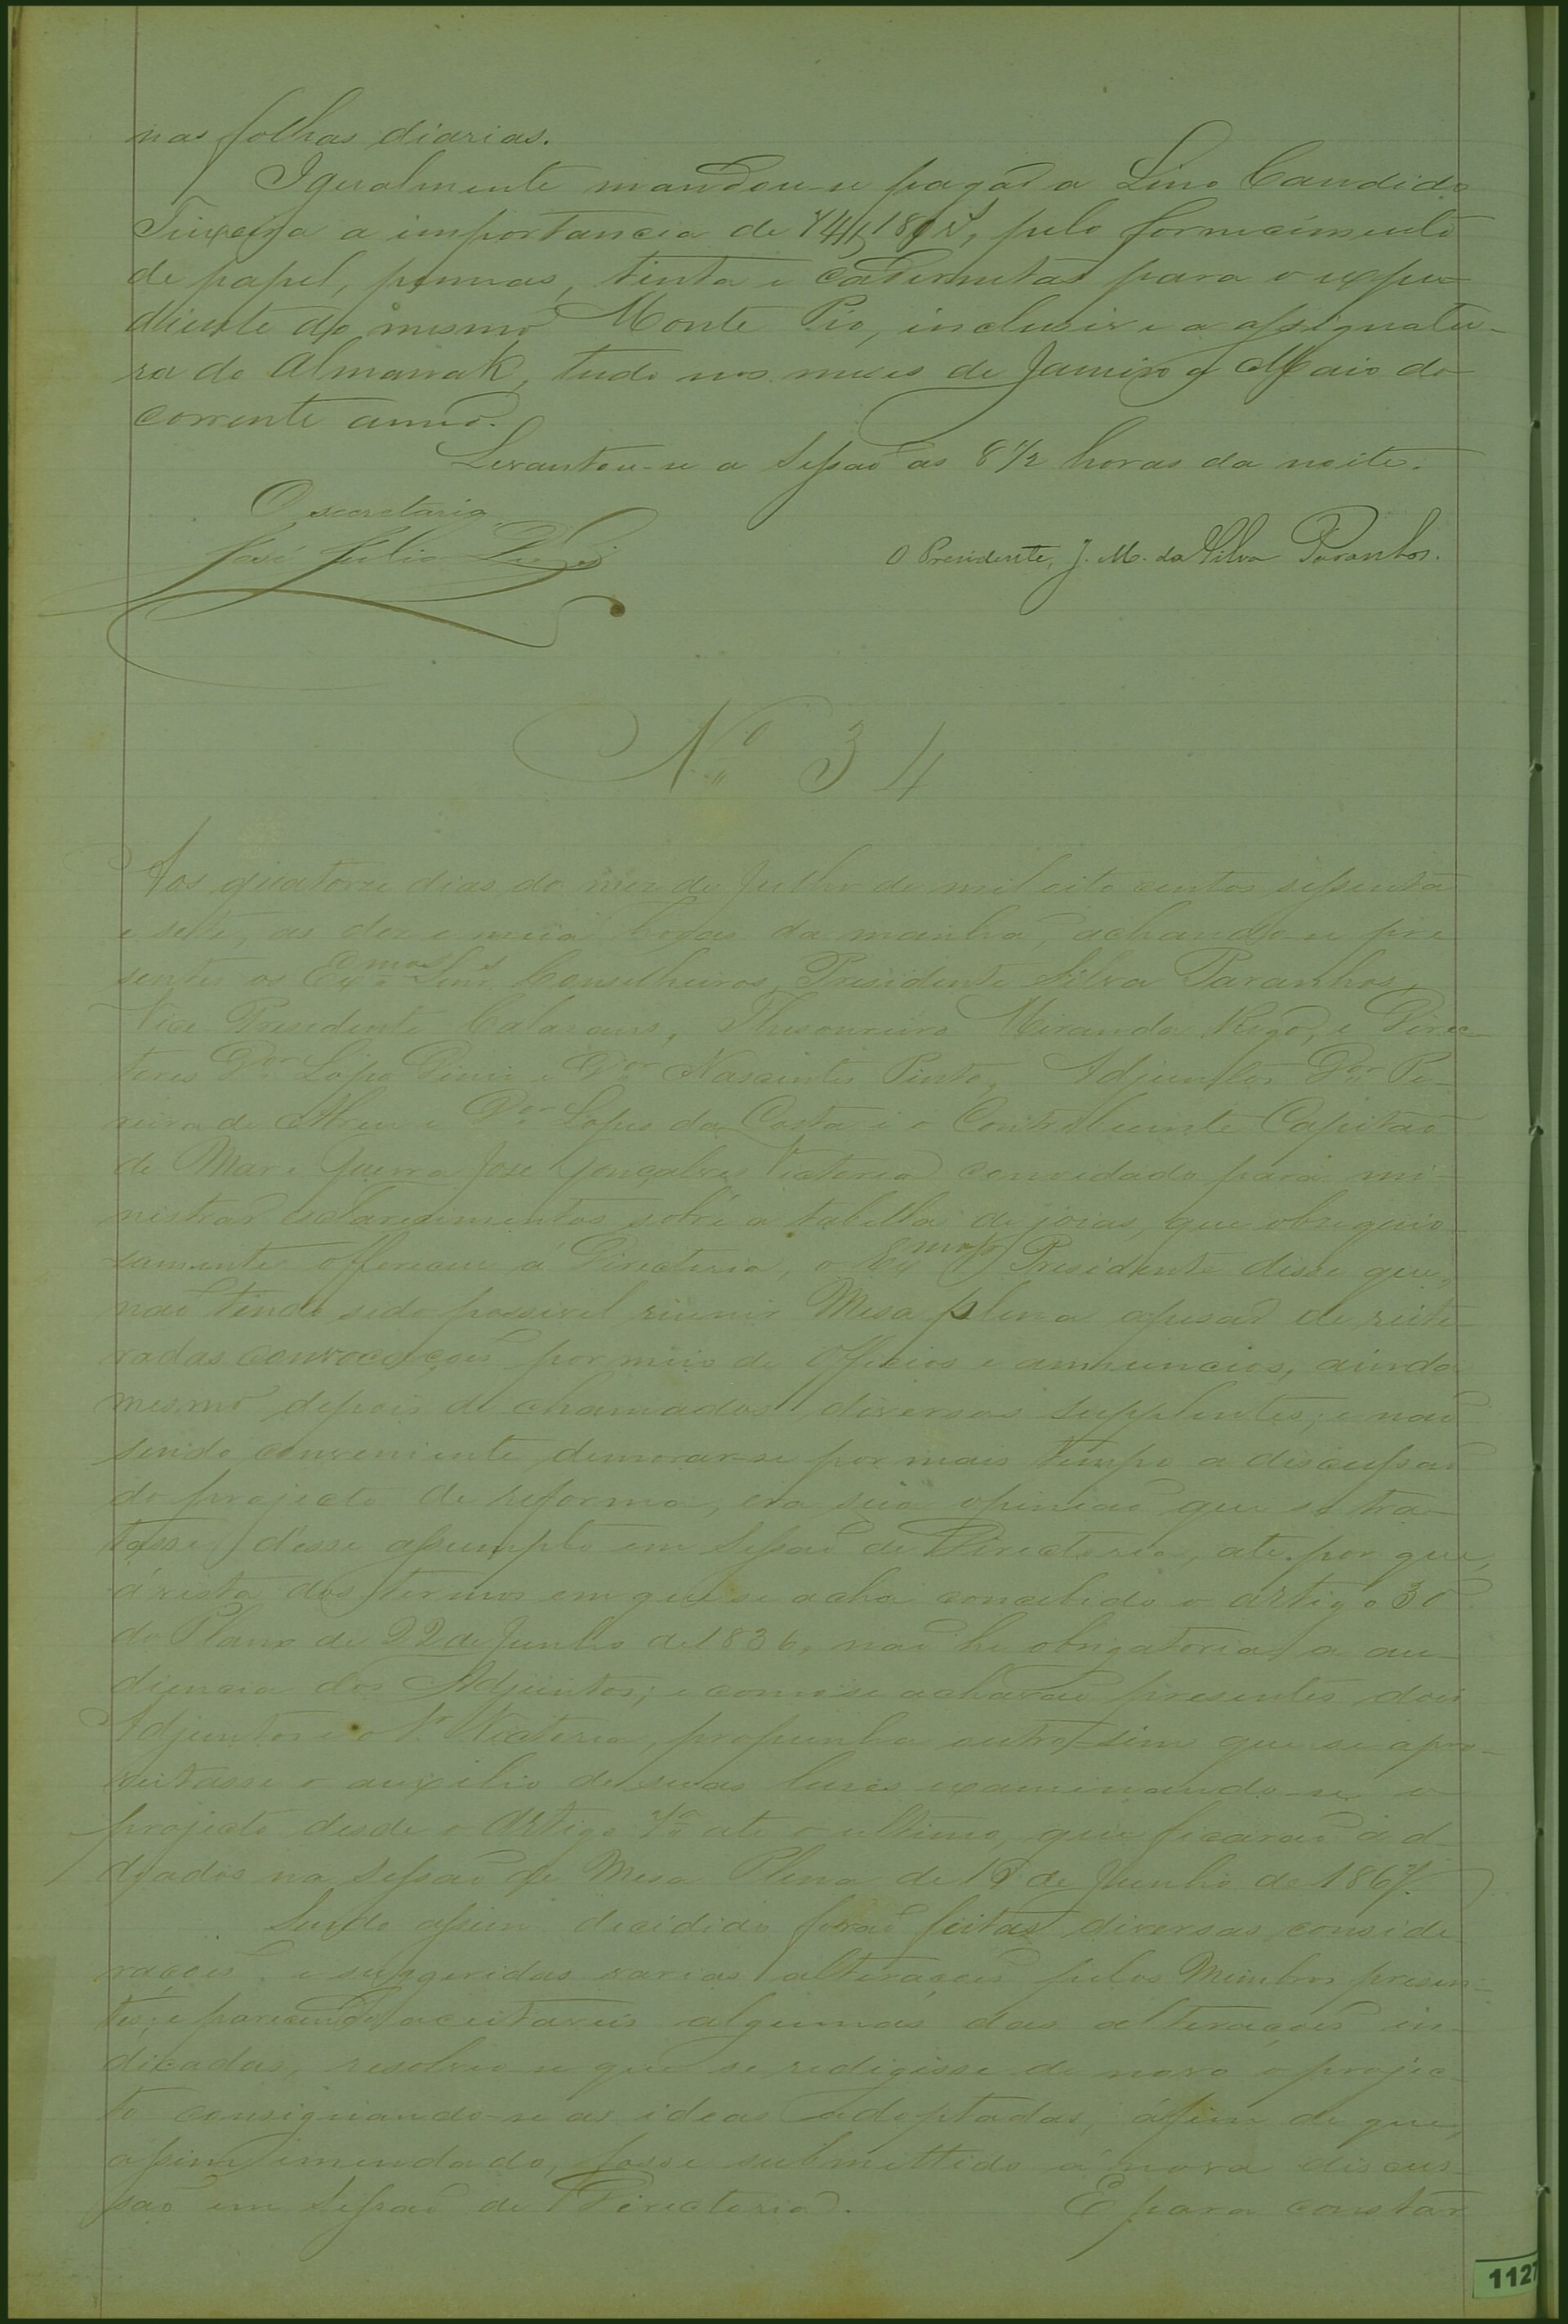 nas folhas diarias.
Igualmente mandou-se pagar a Lino Candido
Teixeira a importancia de pelo fornecimento
de papel, pennas, tinta e cadernetas para o expe-
diente do mesmo Monte Pio, inclusive a assignatu-
ra do Almanak, tudo nos meses de Janeiro a Maio do
corrente anno.
Levantou-se a Sessaõ as 8 1/2 horas da noite.
O secretario
José Julio
O Presidente, J. M. da Silva Paranhos.
Nº 34
Aos quatorze dias do mez de Julho de mil oito centos sessenta
e sette, as dez e meia horas da manhã, achando-se pre
sentes os Exmos Snrs Conselheiros Presidente Silva Paranhos,
Vice Presidente Calazans, Thesoureiro Miranda Rego, e Direc
tores Dor Lopo Diniz e Dor Nascentes Pinto, Adjuntos Dor Pe-
reira de Abreu e Dor Lopes da Costa e o Contribuinte Capitaõ
de Mar e Guerra José Gonçalves Victoria convidado para mi-
nistrar esclarecimentos sobre a tabella de joias, que obsequio
samente offereceu á Directoria, o Exmo Sr Presidente disse que,
naõ tendo sido possivel reunir Mesa plena apesar de reite-
radas convocaçoes por meio de officios e annuncios, ainda
mesmo depois de chamados diversos supplentes; e naõ
sendo conveniente demorar-se por mais tempo a discussaõ
do projecto de reforma, era sua opiniaõ que se tra-
tasse d'esse assumpto em Sessaõ de Directoria, até por que,
á vista dos termos em que se acha concebido o artigo 30
do Plano de 22 de Junho de 1836, naõ he obrigatoria a au-
diencia dos Adjuntos; e como se achavaõ presentes dois
Adjuntos e o Sr Victoria, propunha outro sim que se apro-
veitasse o auxilio de suas luzes examinando-se o
projecto desde o Artigo 7º até o ultimo, que ficaraõ a d-
dyados na Sessaõ de Mesa Plena de de Junho de 1867.
Sendo assim decidido foraõ feitas diversas conside
raçoẽs, e suggeridas varias alteraçoẽs pelos Membros presen-
tes; e parecendo aceitaveis algumas das alteraçoẽs in-
dicadas, resolveu-se que se redigisse de novo o projec-
to consignando-se as ideas adoptadas, áfim de que,
assim emendado, fosse submettido á nova discus-
saõ em Sessaõ de Directoria. E para constar
1127